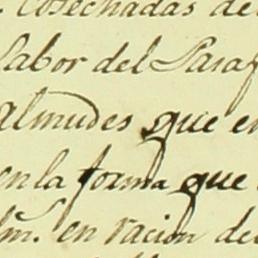 Cosechadas de
Labor del Paraf
almudes que e
en la forma que
lm. en racion de